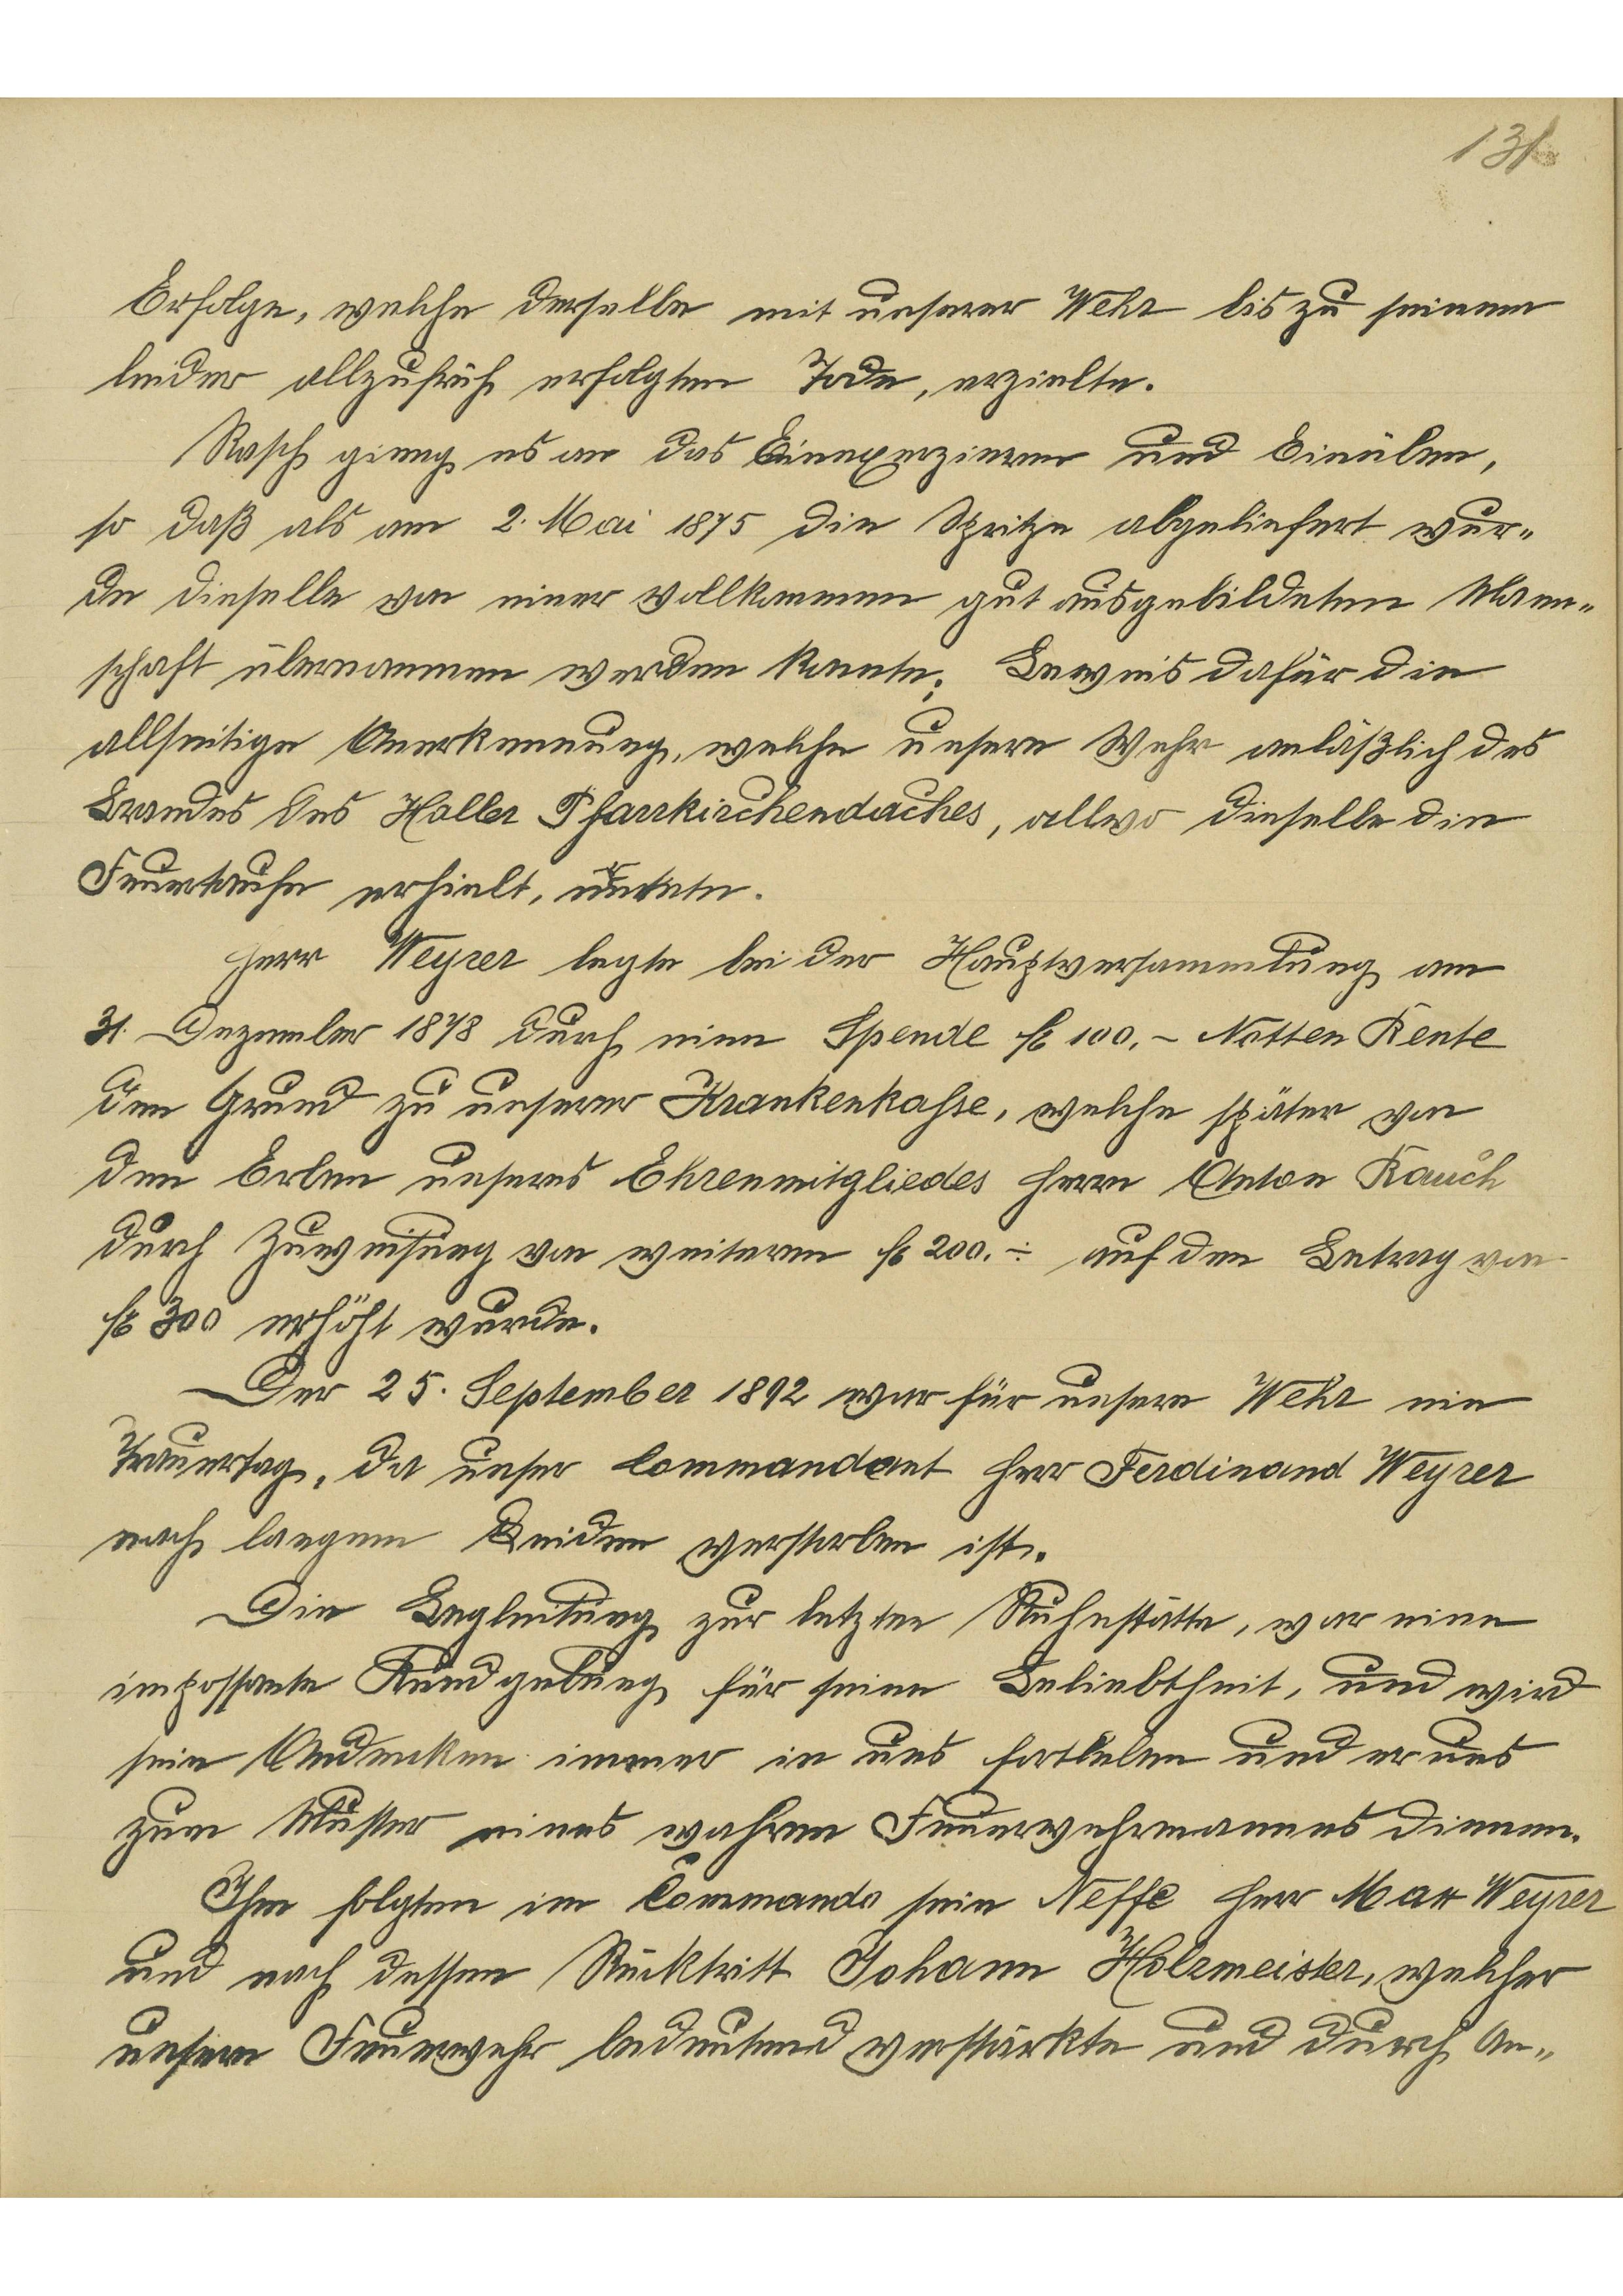 131
Erfolge, welche derselbe mit unserer Wehr bis zu seinem
leider allzufrüh erfolgten Tode, erzielte.
Rasch gieng es an das Einexerzieren und Einüben,
so daß als am 2. Mai 1875 die Spritze abgeliefert wur-
de dieselbe von einer vollkommen gut ausgebildeten Mann-
schaft übernommen werden konnte; Beweis dafür die
allseitige Anerkennung, welche unsere Wehr anläßlich des
Brandes des Haller Pfarrkirchendaches, allwo dieselbe die
Feuertaufe erhielt, erntete.
Herr Weyrer legte bei der Hauptversammlung am
31. Dezember 1878 durch eine Spende fl 100.- Notten Rente
den Grund zu unserer Krankenkasse, welche später von
den Erben unseres Ehrenmitgliedes Herrn Anton Rauch
durch Zuweisung von weiteren fl 200.- auf den Betrag von
fl 300 erhöht wurde.
Der 25. September 1892 war für unsere Wehr ein
Trauertag, da unser Commandant Herr Ferdinand Weyrer
nach langem Leiden verstorben ist.
Die Begleitung zur letzten Ruhestätte, war eine
impossante Kundgebung für seine Beliebtheit, und wird
sein Andenken immer in uns fortleben und er uns
zum Muster eines wahren Feuerwehrmannes dienen.
Ihm folgten im Commando sein Neffe Herr Max Weyrer
und nach dessen Rücktritt Johann Holzmeister, welcher
unsere Feuerwehr bedeutend verstärkte und durch An-